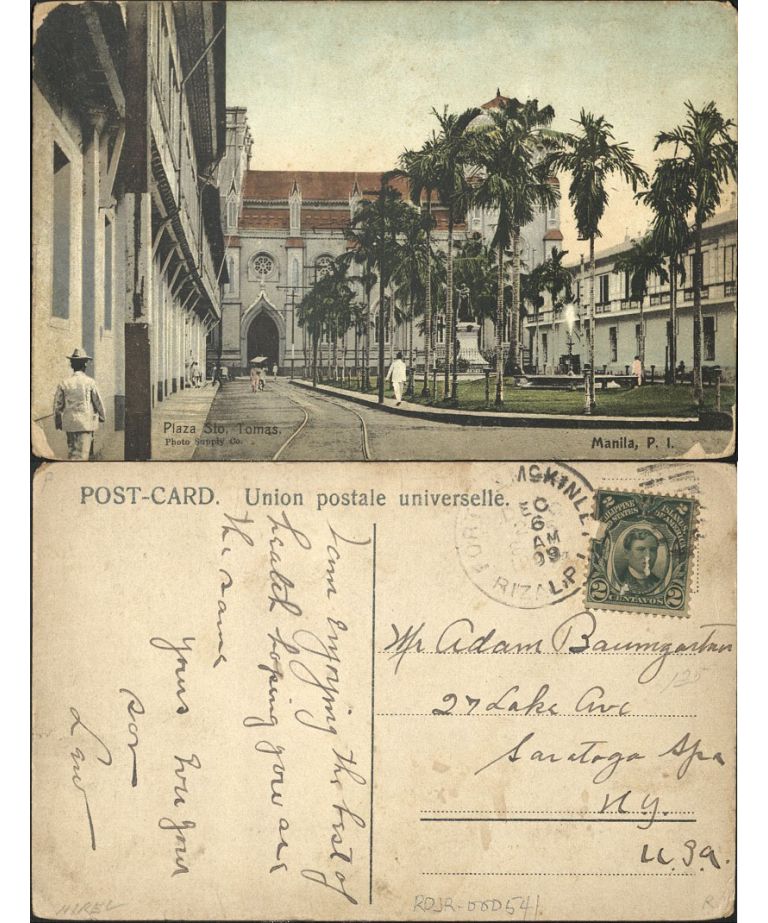 Plaza Sto. Tomas.
Photo Supply Co.
Manila, P. I.
POST-CARD. Union postale universelle.
I am enjoying the best of
health hoping you are
the same
Yours
your
son
Lew
McKINLE
6
AM
09
RIZAL, P. I.
2 2
PHILIPPINE ISLANDS
UNITED STATES OF AMERICA
2 CENTAVOS 2
Mr Adam Baumgartner
27 Lake Ave
Saratoga Spa
N.Y.
U.S.A.
135
RDJR-00D541
R